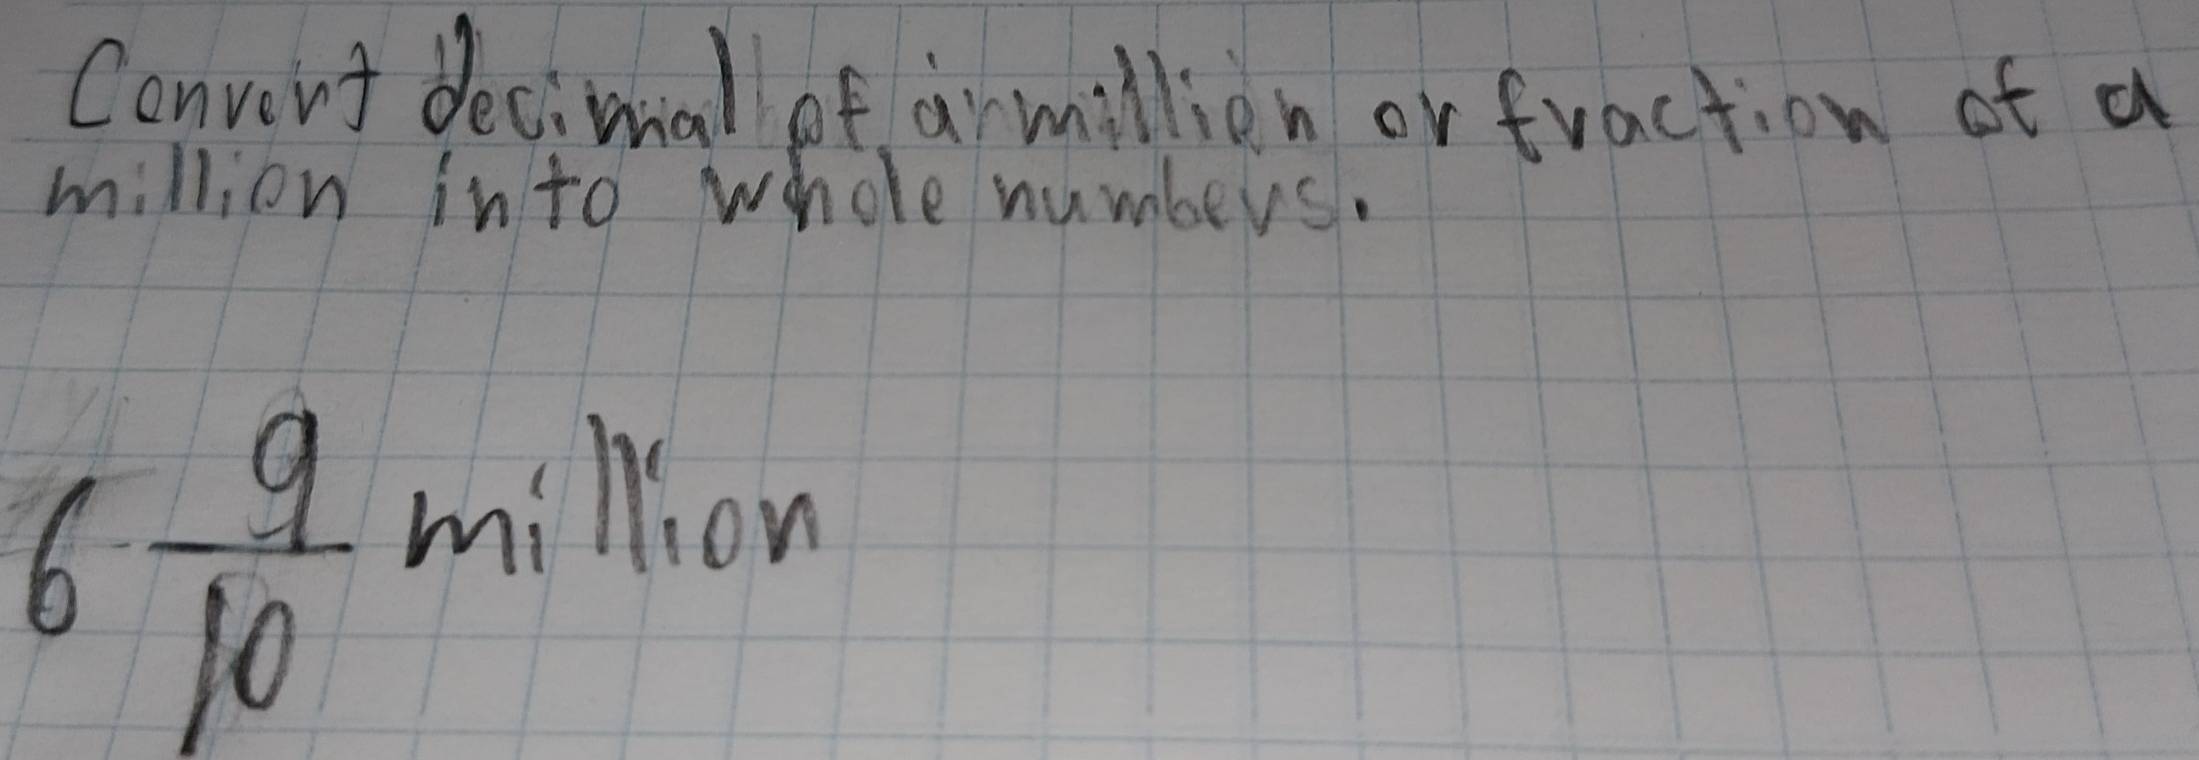 Convert decimal of a million or fraction of a
million into whole numbers.
6 9/10 million